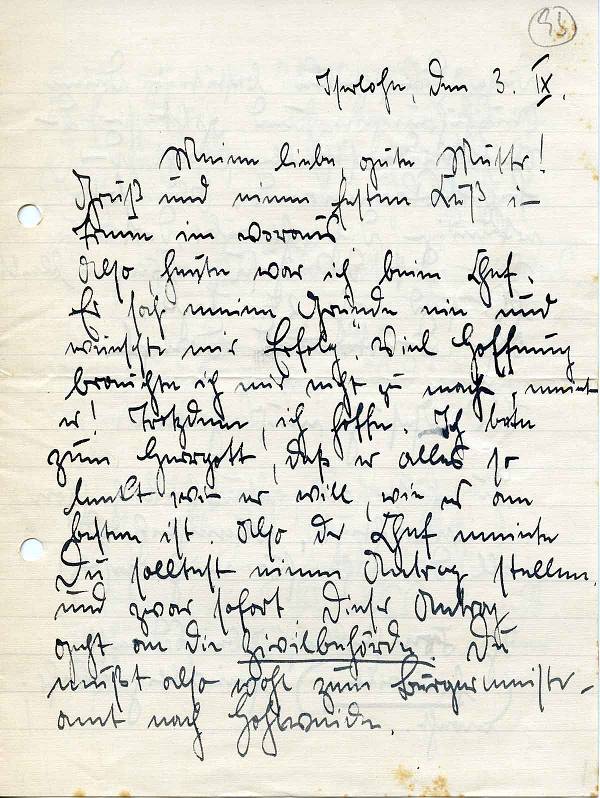 93
Iserlohn, den 3. IX.
Meine liebe, gute Mutter!
Gruß und einen festen Kuß i-
im voraus
Also, heute war ich beim Chef.
Er sah meine Gründe ein und
wünschte mir "Erfolg". Viel Hoffnung
brauchte ich mir nicht zu mach, meint
er! Trotzdem, ich hoffe. Ich bete
zum Herrgott, daß er alles so
lenkt wie er will, wie es am
besten ist. Also, der Chef meinte
Du solltest einen Antrag stellen,
und zwar sofort. Dieser Antrag
geht an die Zivilbehörde. Du
mußt also wohl zum Bürgermeister-
amt nach